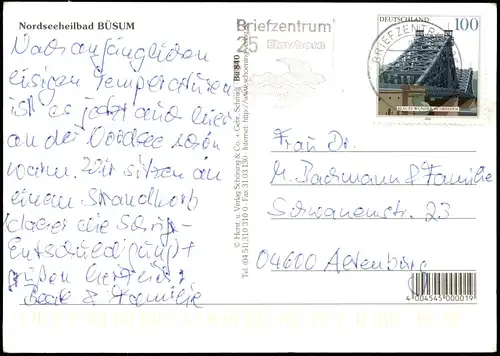 Nordseeheilbad BÜSUM
Nach anfänglichen
eisigen Temperaturen
ist es jetzt auch hier
an der Nordsee schön
warm. Wir sitzen an
einem Strandkorb
(daher die Schrift-
Entschuldigung)
grüßen herzlichst
& Familie
Bü 840
© Horst u. Verlag Schöning & Co. + Gebr. Schmidt
Tel. (04 51) 310 310 0 · Fax 31 03 150 · Internet: http://www.schoening-verlag.de
Briefzentrum
25
Elmshorn
DEUTSCHLAND 100
BLAUES WUNDER IN DRESDEN
2000
BRIEFZENTRUM
Frau Dr.
M. Bachmann & Familie
Schwanenstr. 23
04600 Altenburg
4 004545 000019